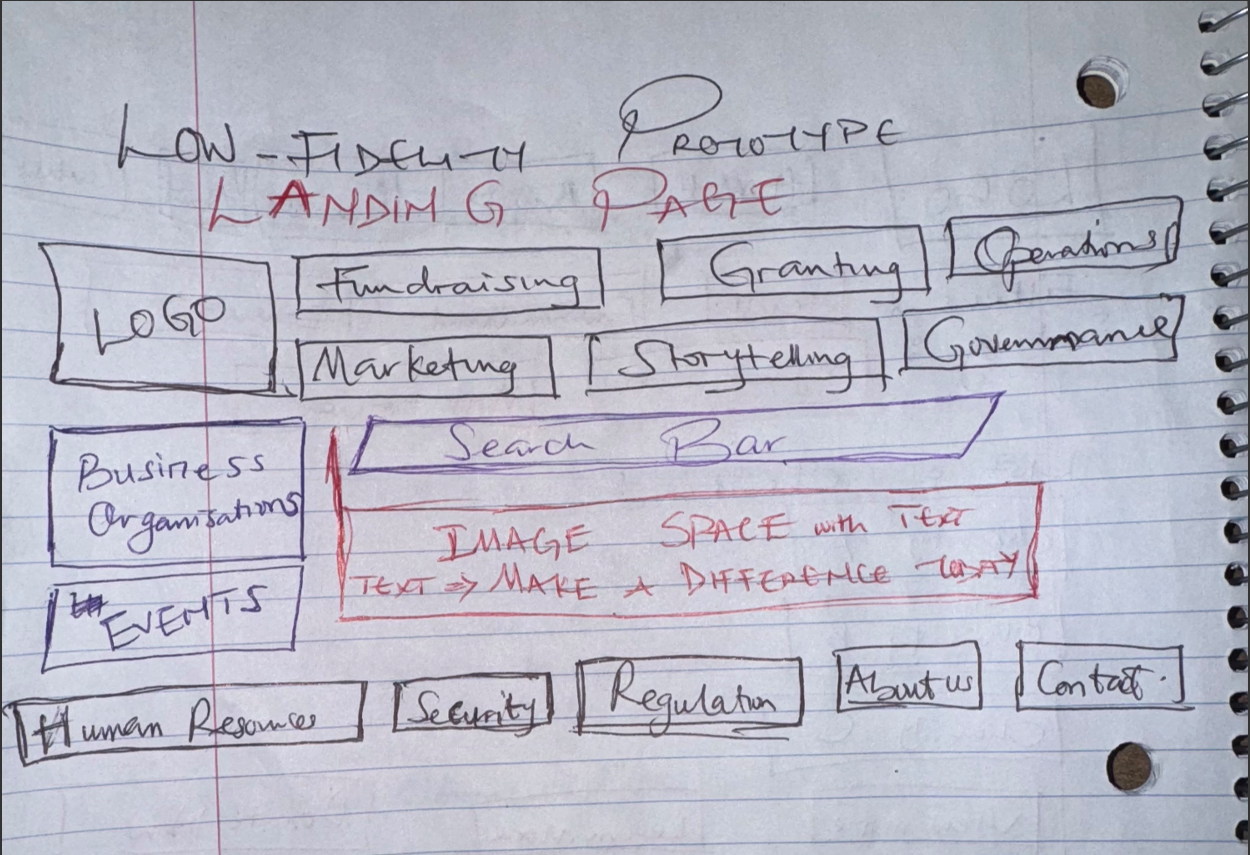 LOW-FIDELITY PROTOTYPE
LANDING PAGE
LOGO
Fundraising
Granting
Operations
Marketing
Storytelling
Governance
Business
Organisations
Search Bar
IMAGE SPACE with TEXT
TEXT ⇒ MAKE A DIFFERENCE TODAY
EVENTS
Human Resources
Security
Regulation
About us
Contact.